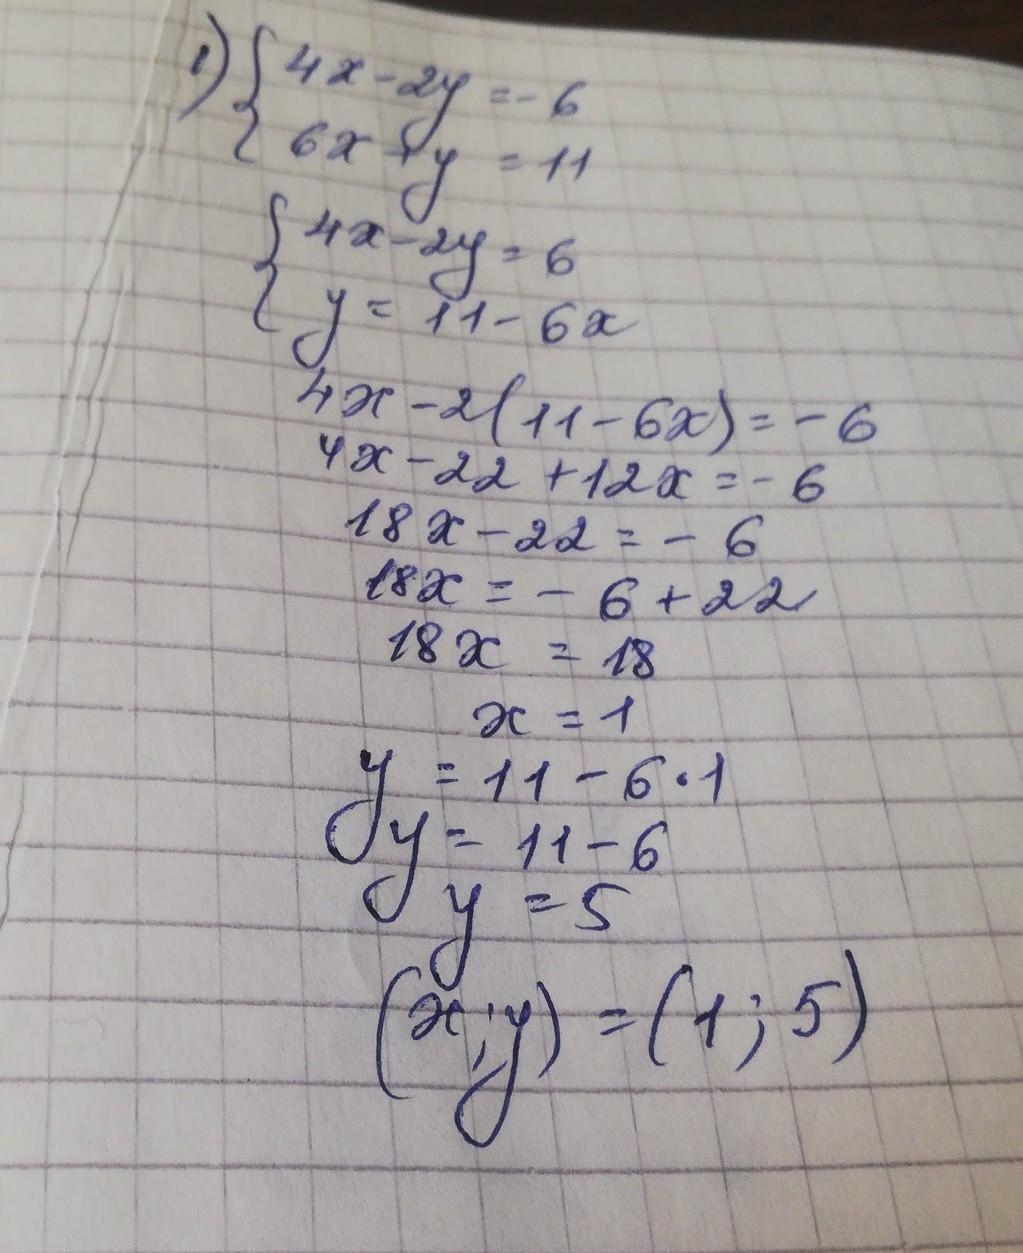 1) { 4x - 2y = - 6
6x + y = 11
{ 4x - 2y = 6
y = 11 - 6x
4x - 2(11 - 6x) = - 6
4x - 22 + 12x = - 6
18x - 22 = - 6
18x = - 6 + 22
18x = 18
x = 1
y = 11 - 6 · 1
y = 11 - 6
y = 5
(x; y) = (1; 5)